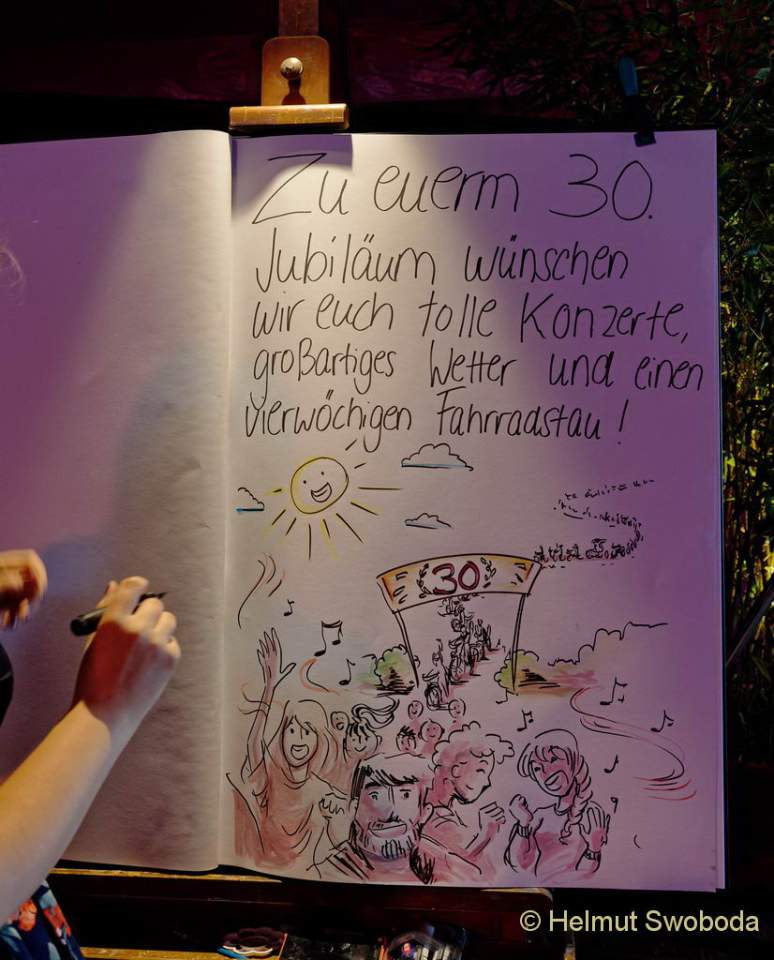 Zu euerm 30.
Jubiläum wünschen
wir euch tolle Konzerte,
großartiges Wetter und einen
vierwöchigen Fahrradstau!
30
© Helmut Swoboda